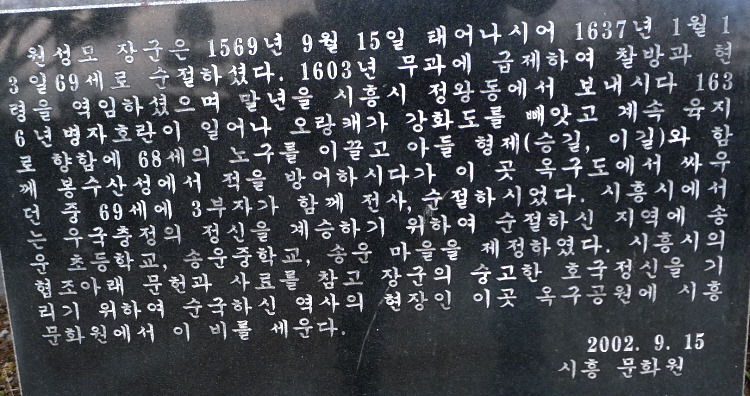 원성모 장군은 1569년 9월 15일 태어나시어 1637년 1월 1
3일69세로 순절하셨다. 1603년 무과에 급제하여 찰방과 현
령을 역임하셨으며 말년을 시흥시 정왕동에서 보내시다 163
6년병자호란이 일어나 오랑캐가 강화도를 빼앗고 계속 육지
로 향함에 68세의 노구를 이끌고 아들 형제(승길, 이길)와 함
께 봉수산성에서 적을 방어하시다가 이 곳 옥구도에서 싸우
던 중 69세에 3부자가 함께 전사, 순절하시었다. 시흥시에서
는 우국충정의 정신을 계승하기 위하여 순절하신 지역에 송
운 초등학교, 송운중학교, 송운 마을을 제정하였다. 시흥시의
협조아래 문헌과 사료를 참고 장군의 숭고한 호국정신을 기
리기 위하여 순국하신 역사의 현장인 이곳 옥구공원에 시흥
문화원에서 이 비를 세운다.
2002. 9. 15
시흥 문화원